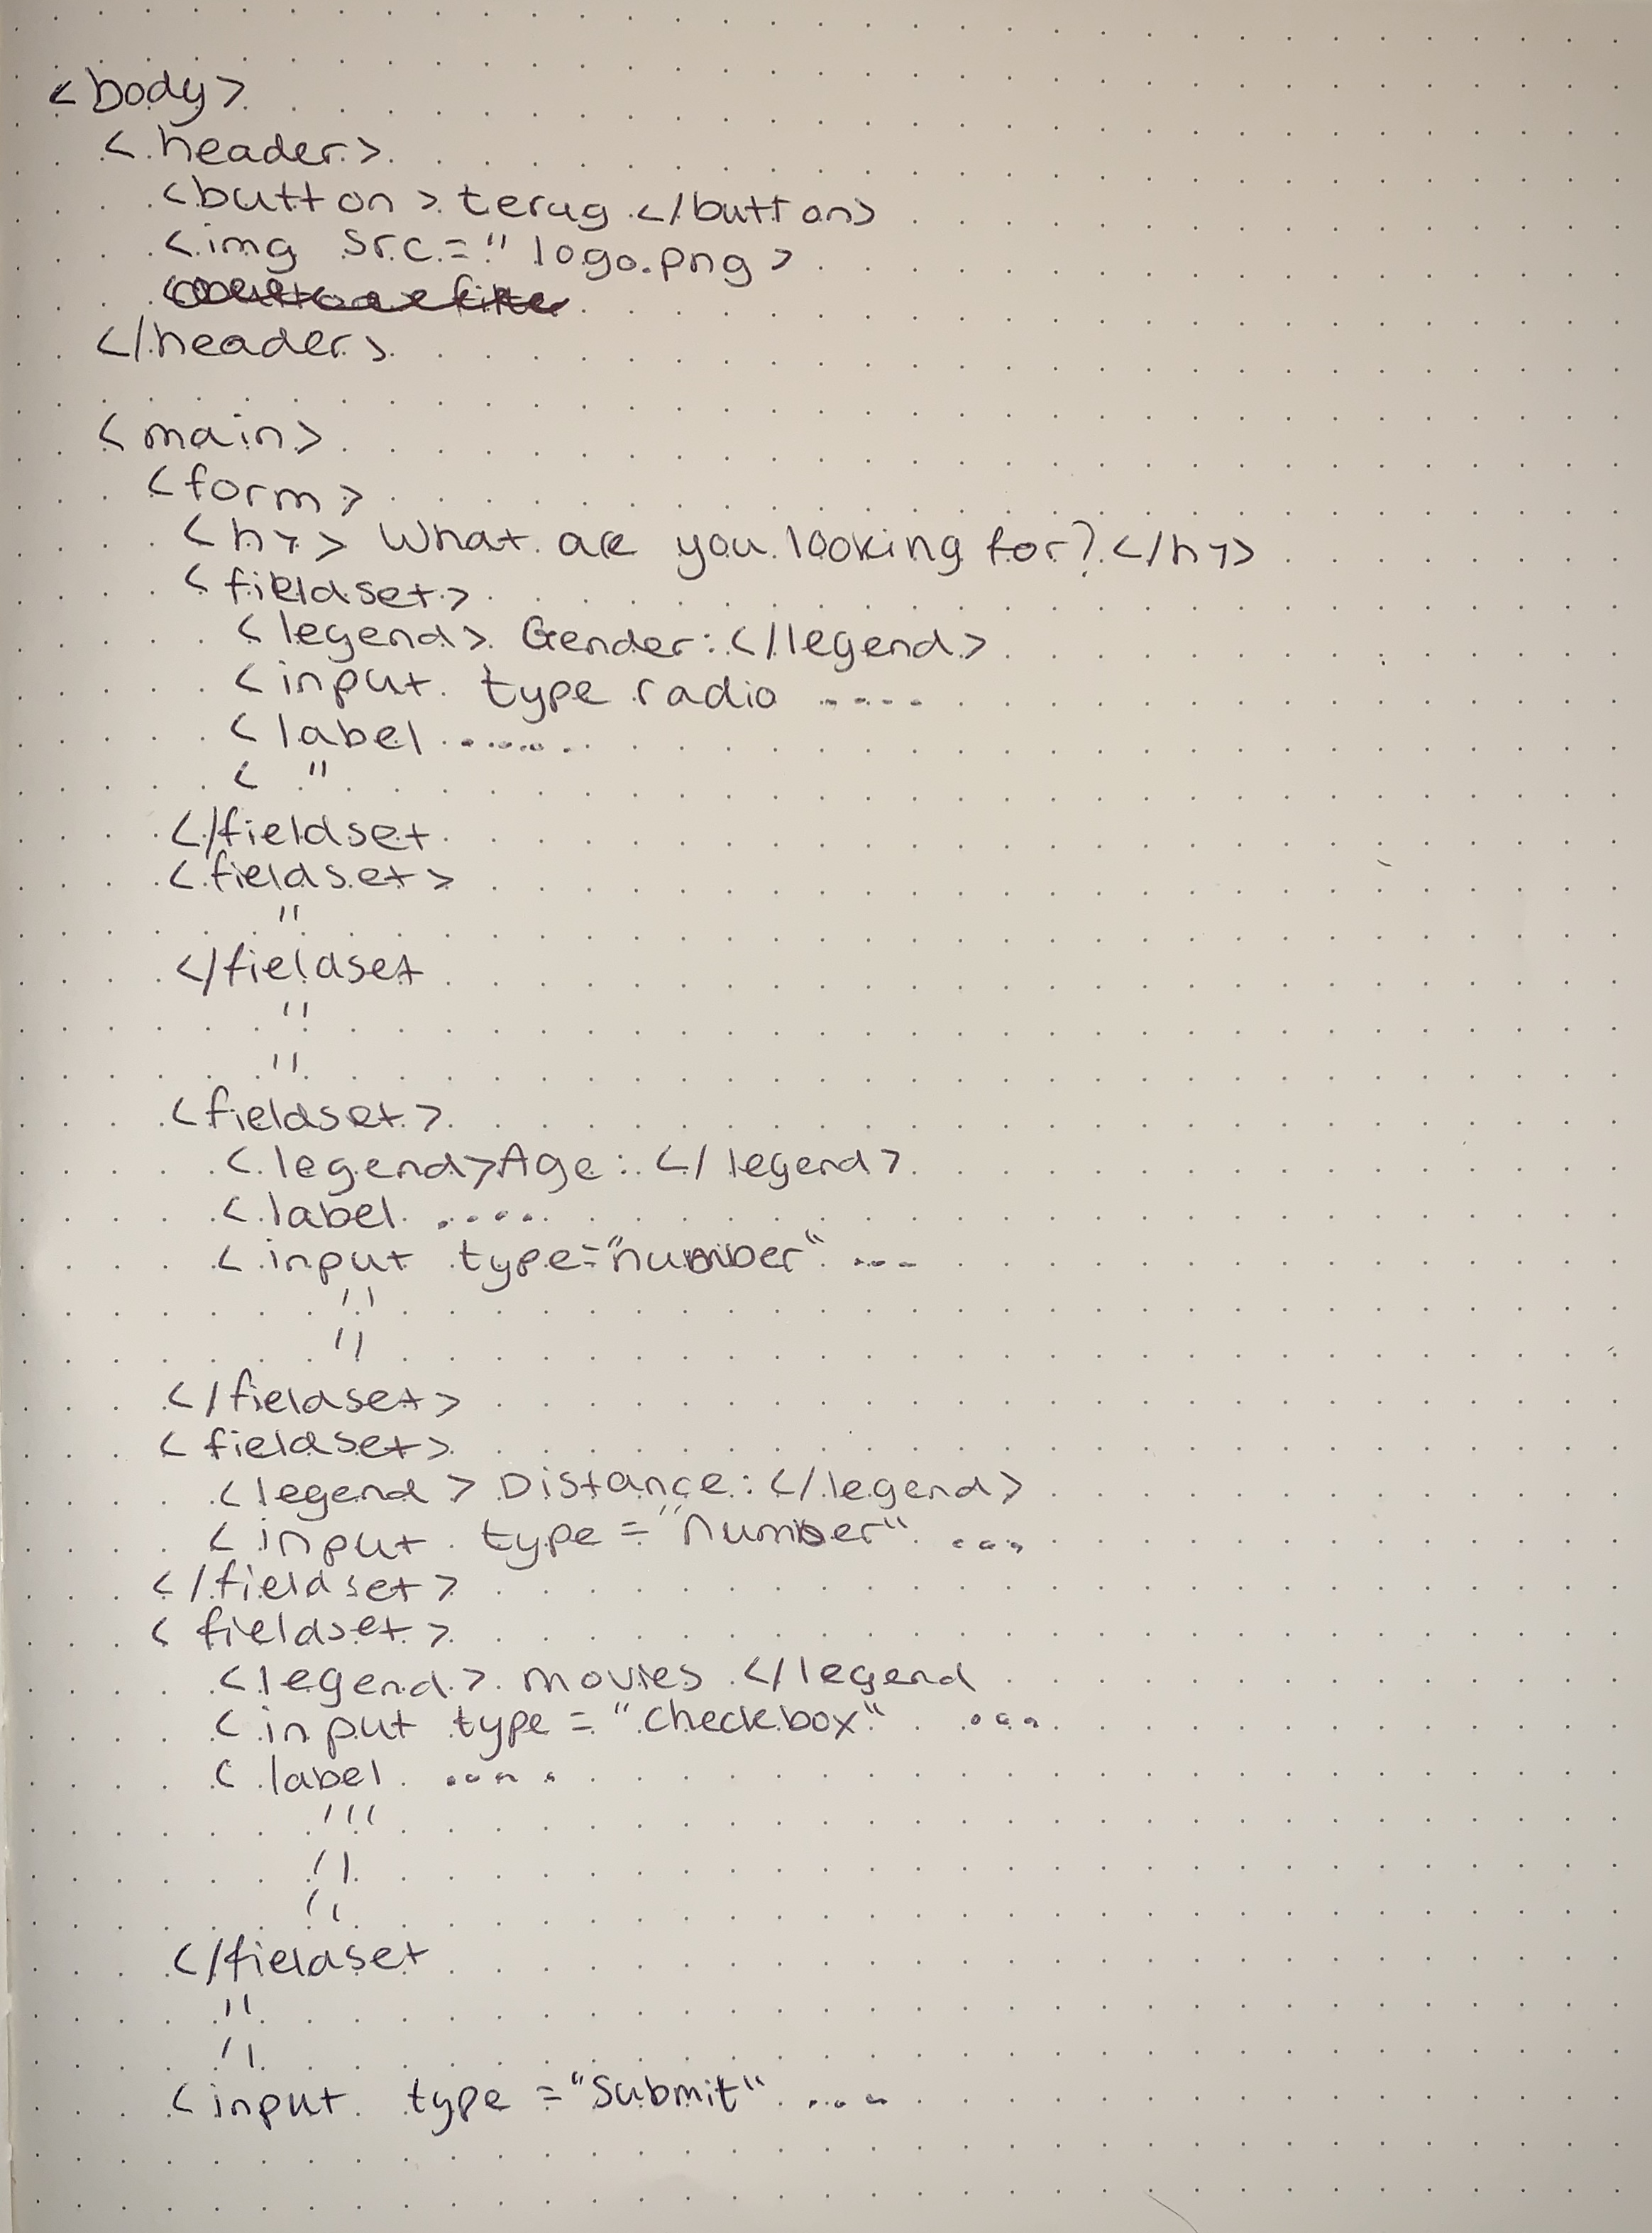 <body>
<header>
<button> terug </button>
<img src=" logo.png >
</header>
<main>
<form>
<h1> What are you looking for? </h1>
<fieldset>
<legend> Gender: </legend>
<input type radio ....
<label ......
< "
</fieldset
<fieldset>
"
</fieldset
"
"
<fieldset>
<legend>Age: </legend>
<label .....
<input type="number" ...
"
"
</fieldset>
<fieldset>
<legend> Distance: </legend>
<input type = "number" ...
</fieldset>
<fieldset>
<legend> movies </legend
<input type = "checkbox" ...
<label ....
"'
"
"
</fieldset
"
"
<input type ="Submit" ....